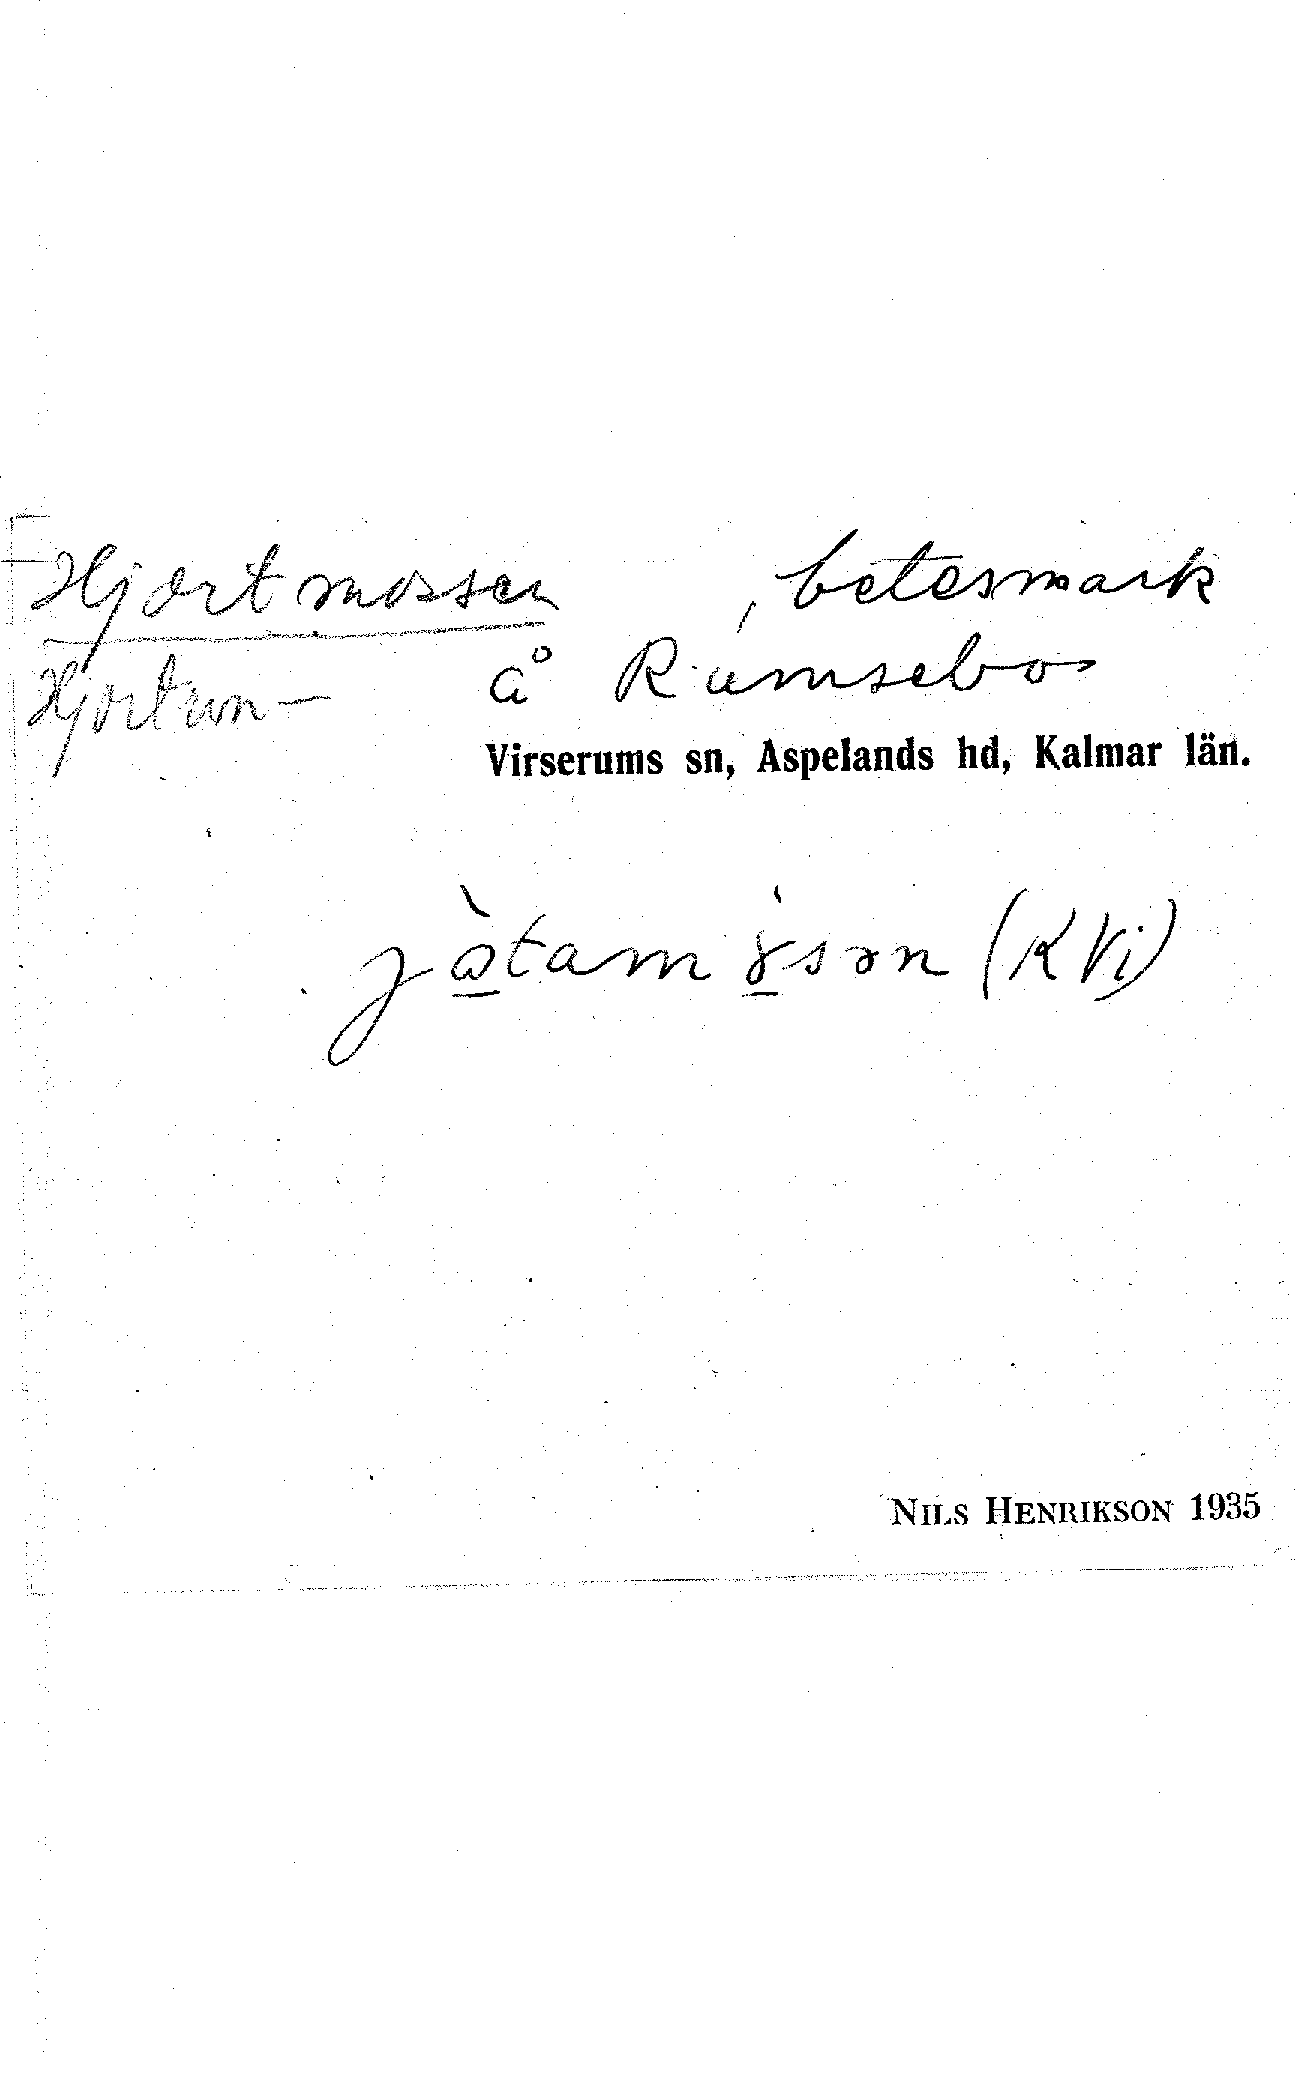 Hjortmossen , betesmark
Hjortron— å Rumsebo
Virserums sn, Aspelands hd, Kalmar län.
(K Vi)
NILS HENRIKSON 1935